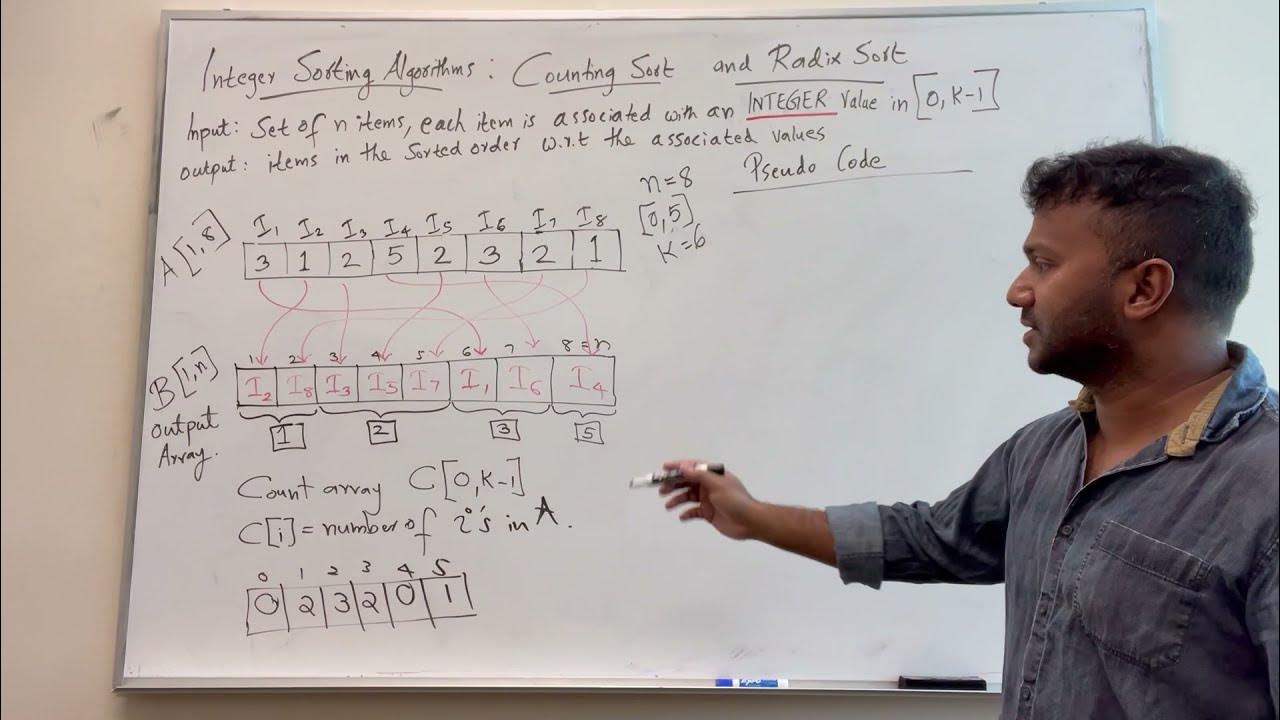 Integer Sorting Algorithms: Counting Sort and Radix Sort
Input: Set of n items, each item is associated with an INTEGER value in [0, K-1]
Output: items in the sorted order w.r.t the associated values
Pseudo Code
n=8
[0,5]
K=6
A[1,8]
I₁ I₂ I₃ I₄ I₅ I₆ I₇ I₈
3 1 2 5 2 3 2 1
B[1,n]
output
Array.
1 2 3 4 5 6 7 8=n
I₂ I₈ I₃ I₅ I₇ I₁ I₆ I₄
1 2 3 5
Count array C[0,K-1]
C[i] = number of i's in A.
0 1 2 3 4 5
0 2 3 2 0 1